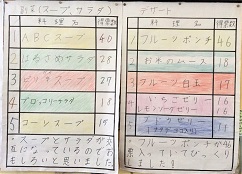 副菜(スープ、サラダ)
料理名 得票数
1 ABCスープ 40
2 はるさめサラダ 28
3 ピリ辛スープ 27
4 ブロッコリーサラダ 18
5 コーンスープ 17
・スープとサラダが交
互になっているのでお
もしろいと思いました
デザート
料理名 得票数
1 フルーツポンチ 46
2 お米のムース 18
3 フルーツ白玉 17
4 いちごゼリー 16
5
・フルーツポンチが46
票入っていてびっくり
しました!